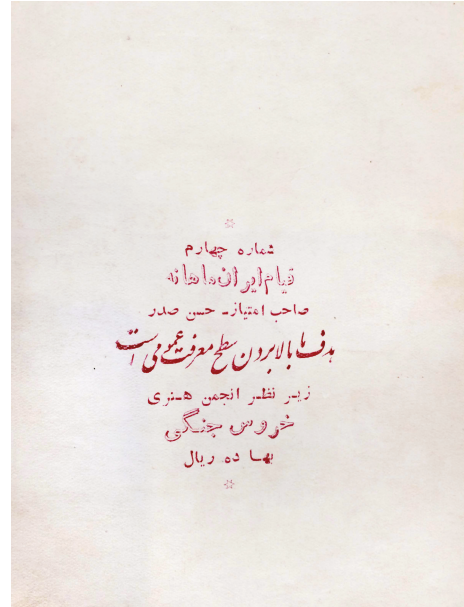 شماره چهارم
قیام ایران ماهانه
صاحب امتیاز - حسن صدر
هدف ما بالا بردن سطح معرفت عمومی است
زیر نظر انجمن هنری
خروس جنگی
بها ده ریال